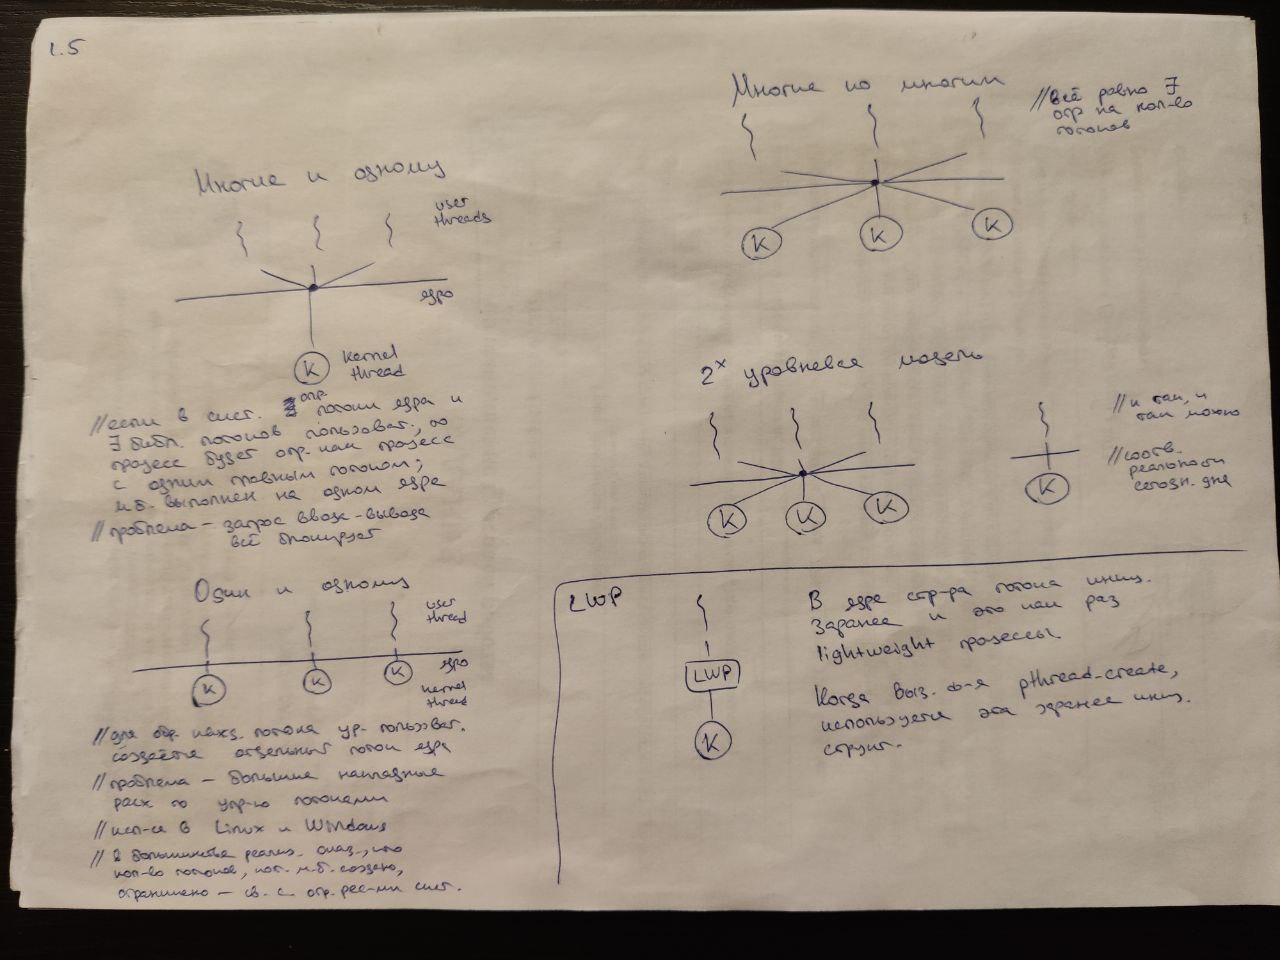 1.5
Многие к одному
user
threads
ядро
K
kernel
thread
//если в сист. отр. потоки ядра и
∃ библ. потоков пользоват., то
процесс будет опр. как процесс
с одним главным потоком;
м.б. выполнен на одном ядре
//проблема – запрос ввода-вывода
всё блокирует
Один к одному
user
thread
ядро
K K K
kernel
thread
//для обр. кажд. потока ур. пользоват.
создаётся отдельный поток ядра
//проблема – большие накладные
расх по упр-ю потоками
//исп-ся в Linux и Windows
//в большинстве реализ. оказ., что
кол-во потоков, кот. м.б. создано,
ограничено – св. с огр. рес-ми сист.
Многие ко многим
//всё равно ∃
огр на кол-во
потоков
K K K
2х уровневая модель
//и так, и
так можно
//соотв.
реальности
сегодн. дня
K K K K
LWP
LWP
K
В ядре стр-ра потока иниц.
заранее и это как раз
lightweight процессы.
Когда выз. ф-я pthread-create,
используется эта заранее иниц.
структ.